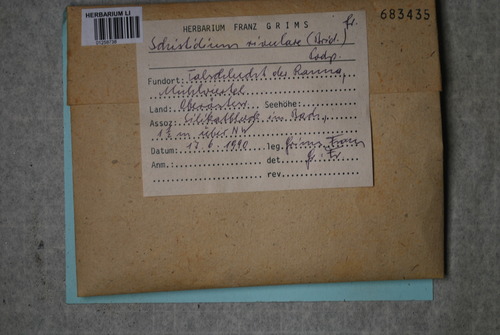 HERBARIUM LI
683435
HERBARIUM FRANZ GRIMS
fr.
Schistidium rivulare (Brid.)
Podp.
Fundort: Talschlucht der Ranna,
Mühlviertel
Land: Seehöhe:
Assoz. Silikatblock im Bach,
über NW
Datum: 17.6.1990 leg. Grims Franz
Anm.: det. Gr. Fr.
rev.